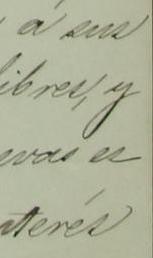 á sus
libres, y
evas es
interés